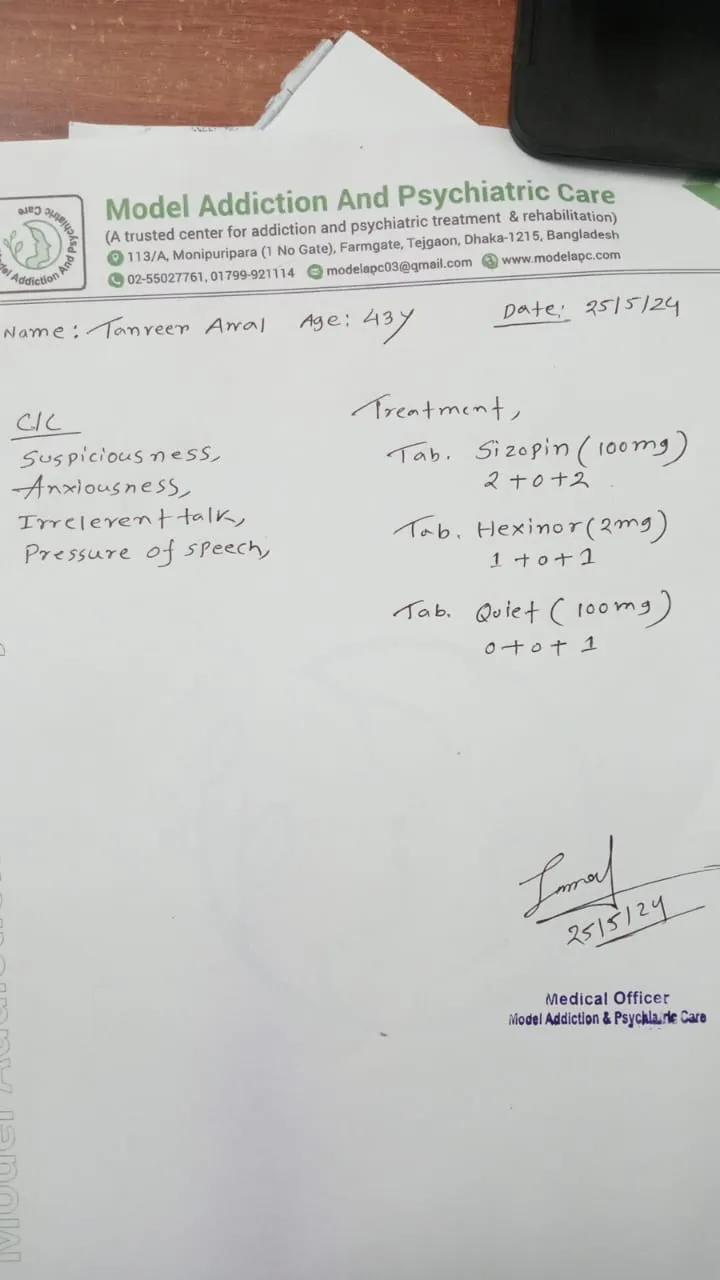 Model Addiction And Psychiatric Care
Model Addiction And Psychiatric Care
(A trusted center for addiction and psychiatric treatment & rehabilitation)
113/A, Monipuripara (1 No Gate), Farmgate, Tejgaon, Dhaka-1215, Bangladesh
02-55027761, 01799-921114 modelapc03@gmail.com www.modelapc.com
Name: Tanveer Age: 43y Date: 25/5/24
C/C
Suspiciousness,
Anxiousness,
Irrelevent talk,
Pressure of speech,
Treatment,
Tab. Sizopin (100mg)
2+0+2
Tab. Hexinor (2mg)
1+0+1
Tab. Quiet (100mg)
0+0+1
25/5/24
Medical Officer
Model Addiction & Psychiatric Care